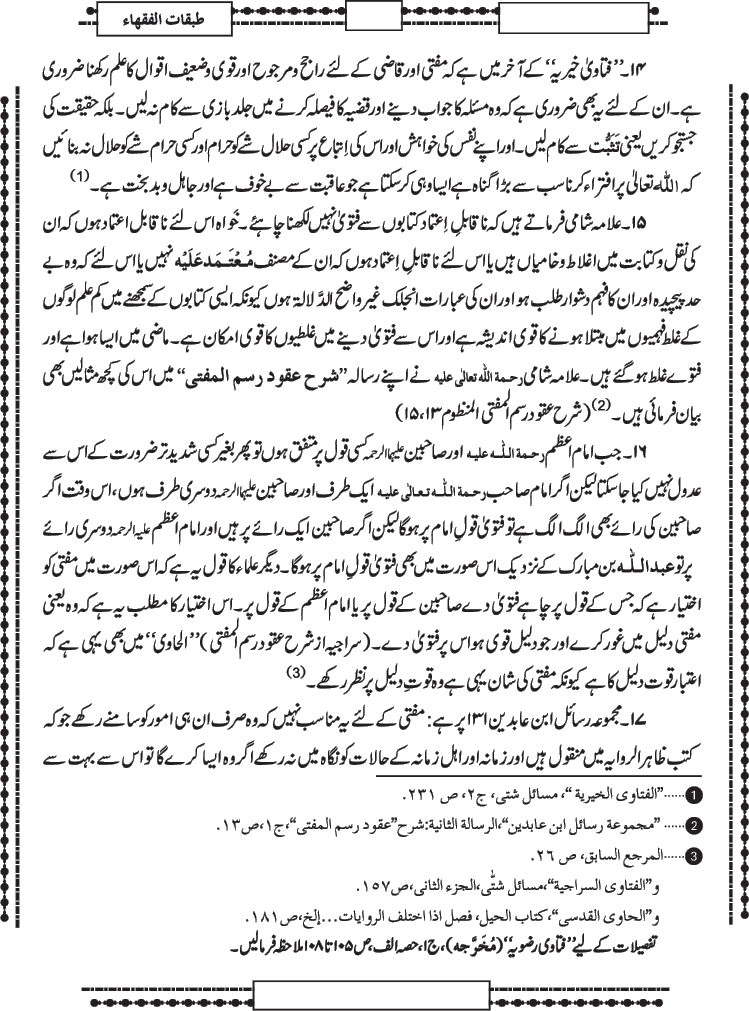 طبقات الفقهاء
۱۴۔ ’’فتاویٰ خیریہ‘‘ کے آخر میں ہے کہ مفتی اور قاضی کے لئے راجح و مرجوح اور قوی و ضعیف اقوال کا علم رکھنا ضروری
ہے۔ ان کے لئے یہ بھی ضروری ہے کہ وہ مسئلہ کا جواب دینے اور قضیہ کا فیصلہ کرنے میں جلد بازی سے کام نہ لیں۔ بلکہ حقیقت کی
جستجو کریں یعنی تَثَبُّت سے کام لیں۔ اور اپنے نفس کی خواہش اور اس کی اِتباع پر کسی حلال شے کو حرام اور کسی حرام شے کو حلال نہ بنائیں
کہ اللہ تعالیٰ پر افتراء کرنا سب سے بڑا گناہ ہے ایسا وہی کرسکتا ہے جو عاقبت سے بے خوف ہے اور جاہل و بد بخت ہے۔(1)
۱۵۔ علامہ شامی فرماتے ہیں کہ نا قابلِ اِعتماد کتابوں سے فتویٰ نہیں لکھنا چاہئے۔ خواہ اس لئے نا قابلِ اعتماد ہوں کہ اِن
کی نقل و کتابت میں اغلاط و خامیاں ہیں یا اس لئے نا قابلِ اِعتماد ہوں کہ اِن کے مصنف مُعْتَمَد عَلَیْہ نہیں یا اس لئے کہ وہ بے
حد پیچیدہ اور ان کا فہم دشوار طلب ہو اور ان کی عبارات انجلک غیر واضح الدَّلالۃ ہوں کیونکہ ایسی کتابوں کے سمجھنے میں کم علم لوگوں
کے غلط فہمیوں میں مبتلا ہونے کا قوی اندیشہ ہے اور اس سے فتویٰ دینے میں غلطیوں کا قوی امکان ہے۔ ماضی میں ایسا ہوا ہے اور
فتوے غلط ہوگئے ہیں۔ علامہ شامی رحمۃ اللہ تعالیٰ علیہ نے اپنے رسالہ ’’شرح عقود رسم المفتی‘‘ میں اس کی کچھ مثالیں بھی
بیان فرمائی ہیں۔(2) (شرح عقود رسم المفتی المنظوم ۱۵،۱۳)
۱۶۔ جب امام اعظم رحمۃ اللہ علیہ اور صاحبین علیہما الرحمہ کسی قول پر متفق ہوں تو پھر بغیر کسی شدید تر ضرورت کے اس سے
عدول نہیں کیا جاسکتا لیکن اگر امام صاحب رحمۃ اللہ تعالیٰ علیہ ایک طرف اور صاحبین علیہما الرحمہ دوسری طرف ہوں، اس وقت اگر
صاحبین کی رائے بھی الگ الگ ہے تو فتویٰ قولِ امام پر ہوگا لیکن اگر صاحبین ایک رائے پر ہیں اور امام اعظم علیہ الرحمہ دوسری رائے
پر تو عبد اللہ بن مبارک کے نزدیک اس صورت میں بھی فتویٰ قولِ امام پر ہوگا۔ دیگر علماء کا قول یہ ہے کہ اس صورت میں مفتی کو
اختیار ہے کہ جس کے قول پر چاہے فتویٰ دے صاحبین کے قول پر یا امام اعظم کے قول پر۔ اس اختیار کا مطلب یہ ہے کہ وہ یعنی
مفتی دلیل میں غور کرے اور جو دلیل قوی ہو اس پر فتویٰ دے۔ (سراجیہ از شرح عقود رسم المفتی) ’’الحاوی‘‘ میں بھی یہی ہے کہ
اعتبار قوت دلیل کا ہے کیونکہ مفتی کی شان یہی ہے وہ قوتِ دلیل پر نظر رکھے۔(3)
۱۷۔ مجموعہ رسائل ابن عابدین ۱۳۱ پر ہے: مفتی کے لئے یہ مناسب نہیں کہ وہ صرف ان ہی امور کو سامنے رکھے جو کہ
کتب ظاہر الروایہ میں منقول ہیں اور زمانہ اور اہل زمانہ کے حالات کو نگاہ میں نہ رکھے اگر وہ ایسا کرے گا تو اس سے بہت سے
1 ......”الفتاوی الخیریة“، مسائل شتی، ج۲، ص ۲۳۱.
2 ......”مجموعة رسائل ابن عابدین“،الرسالة الثانیة:شرح”عقود رسم المفتی“،ج۱،ص۱۳.
3 ......المرجع السابق، ص ۲۶.
و”الفتاوی السراجیة“،مسائل شتّٰی،الجزء الثانی،ص۱۵۷.
و”الحاوی القدسی“،کتاب الحیل، فصل اذا اختلف الروایات...إلخ،ص۱۸۱.
تفصیلات کے لیے ’’فتاوی رضویہ‘‘ (مُخَرَّجہ)، ج۱، حصہ الف، ص۱۰۵ تا ۱۰۸ ملاحظہ فرمالیں۔